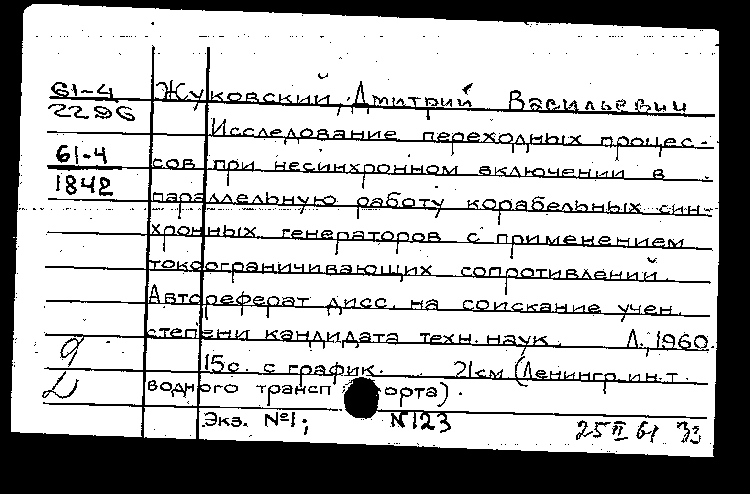 61-4
2296
61-4
1842
Жуковский, Дмитрий Васильевич
Исследование переходных процес-
сов при несинхронном включении в
параллельную работу корабельных син-
хронных генераторов с применением
токоограничивающих сопротивлений.
Автореферат дисс. на соискание учен.
степени кандидата техн. наук. Л., 1960.
15с. с график. 21см (Ленингр. ин.т
водного трансп орта).
Экз. №1; N123
25 II 61